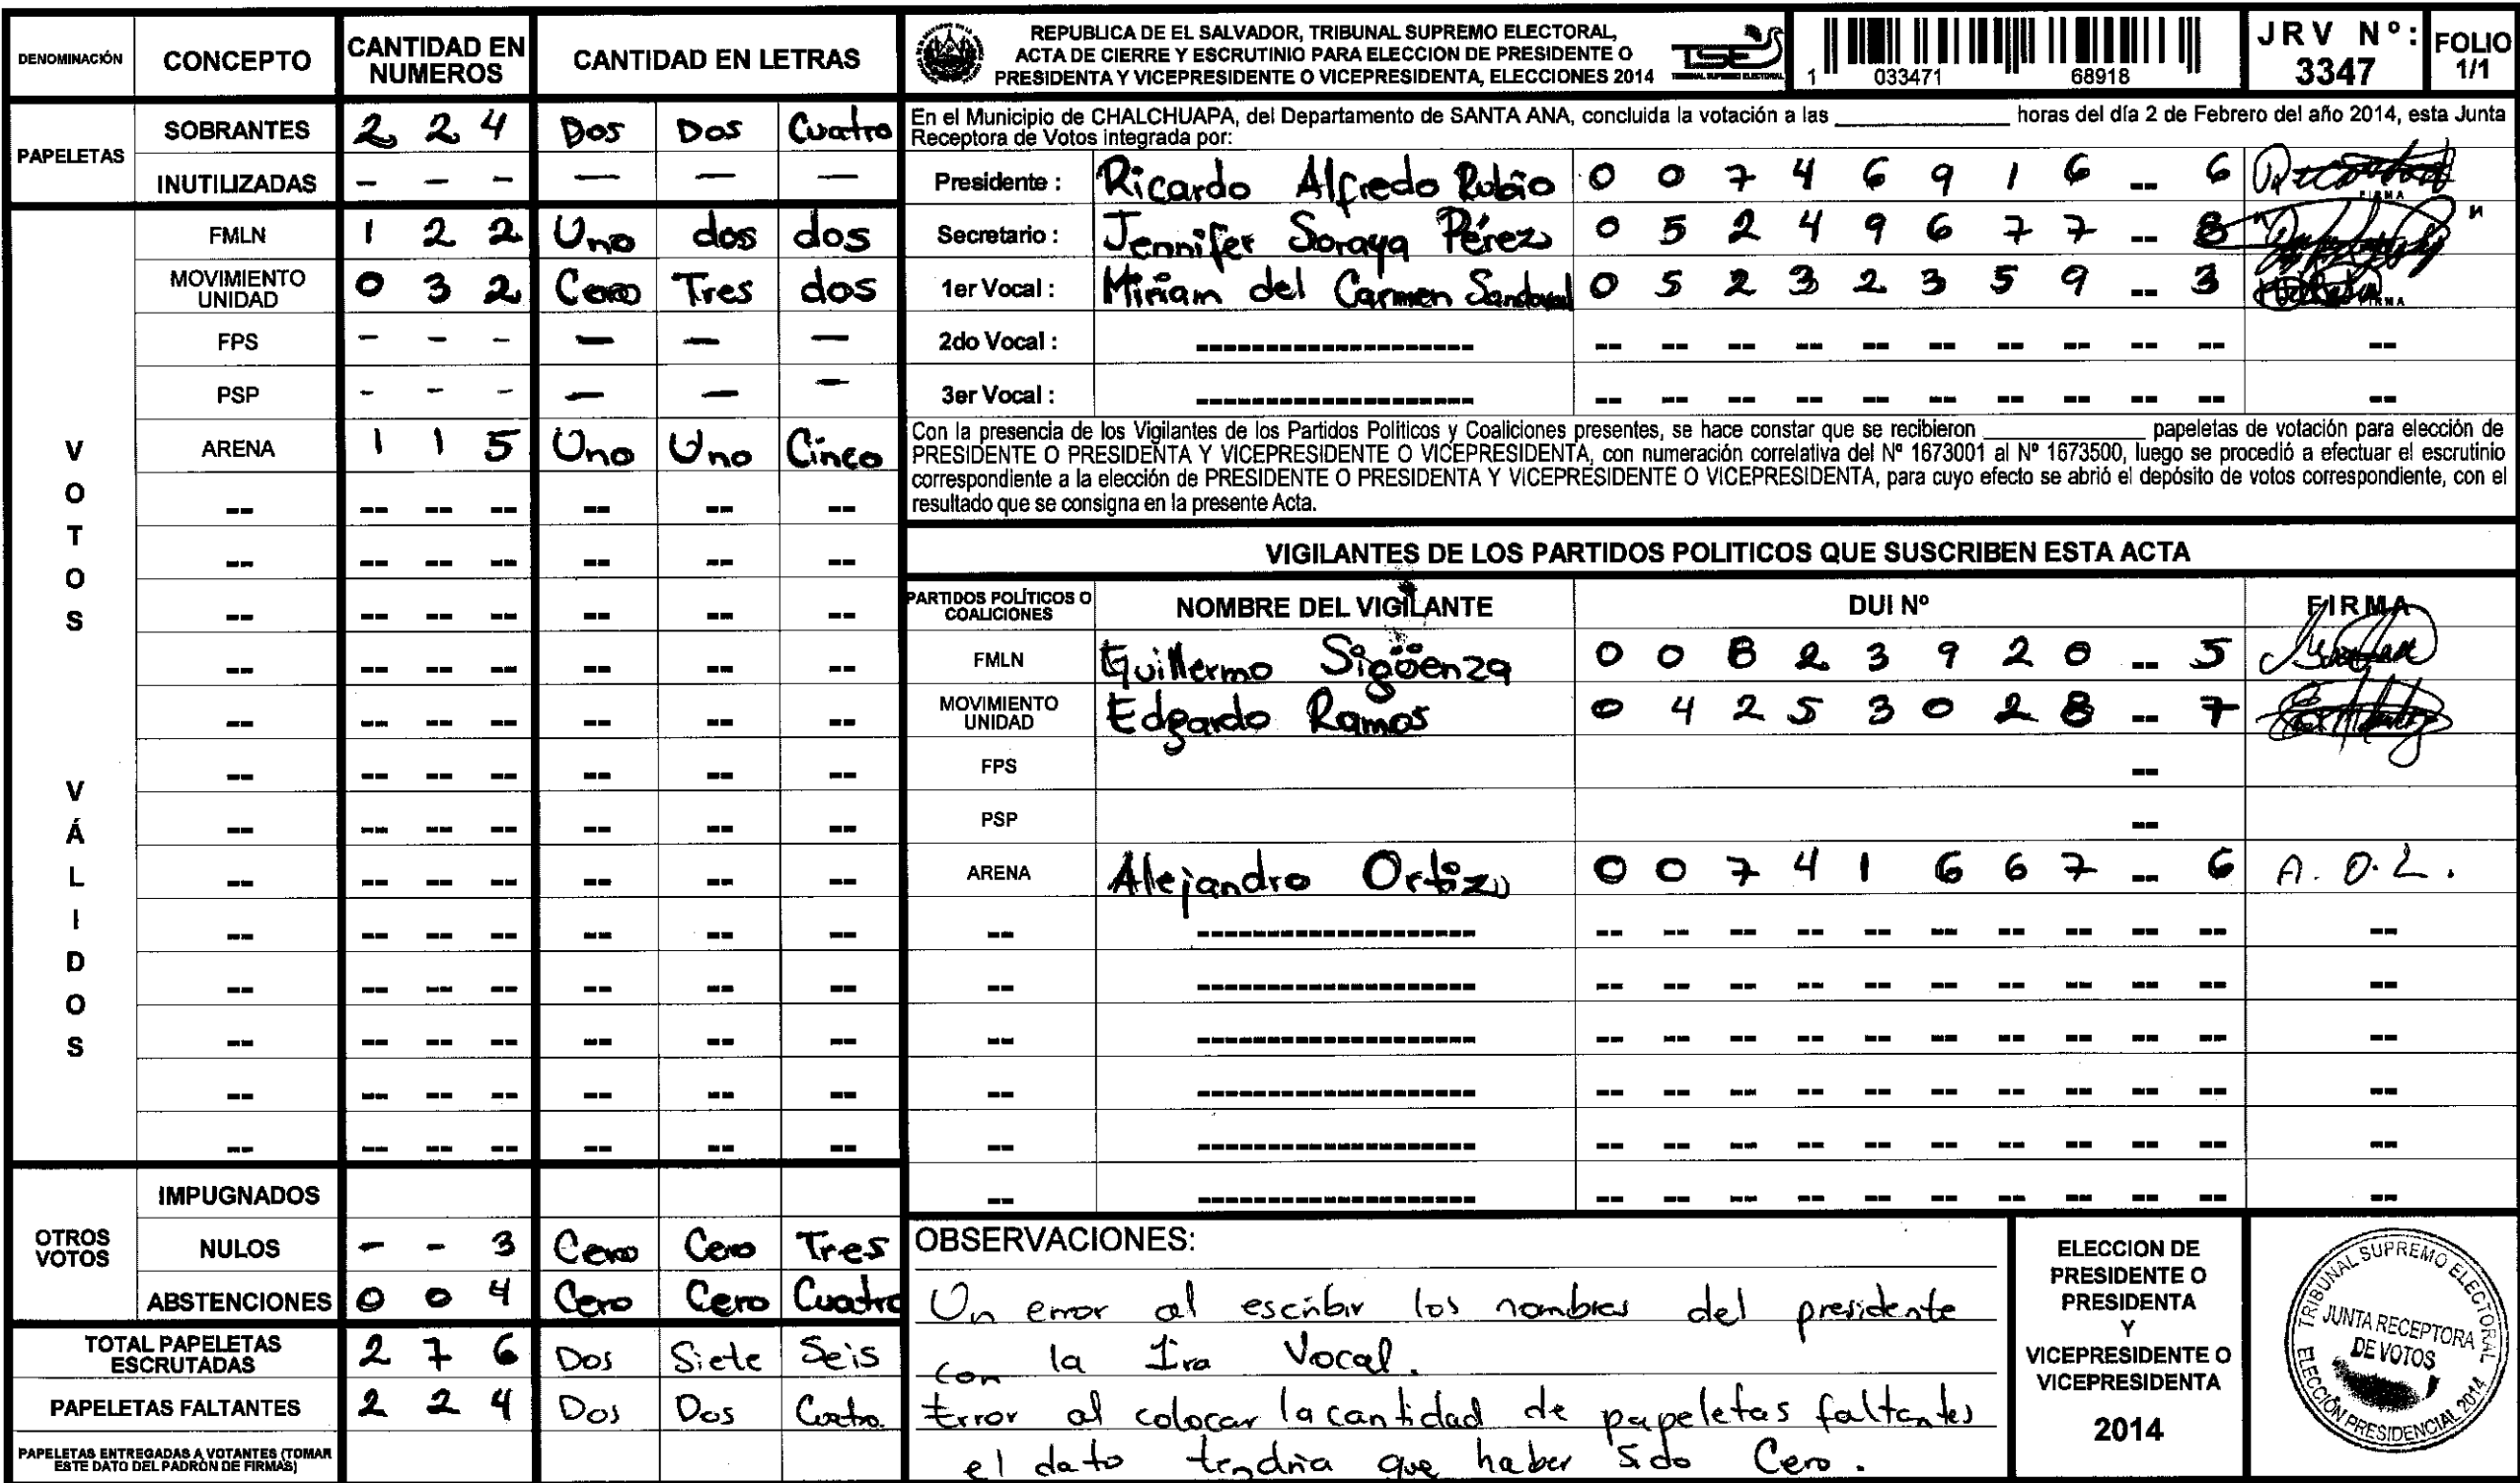 DENOMINACIÓN CONCEPTO CANTIDAD EN NUMEROS CANTIDAD EN LETRAS
PAPELETAS
SOBRANTES 2 2 4 Dos Dos Cuatro
INUTILIZADAS - - - — — —
VOTOS VÁLIDOS
FMLN 1 2 2 Uno dos dos
MOVIMIENTO UNIDAD 0 3 2 Cero Tres dos
FPS - - - — — —
PSP - - - — — —
ARENA 1 1 5 Uno Uno Cinco
-- -- -- -- -- -- --
-- -- -- -- -- -- --
-- -- -- -- -- -- --
-- -- -- -- -- -- --
-- -- -- -- -- -- --
-- -- -- -- -- -- --
-- -- -- -- -- -- --
-- -- -- -- -- -- --
-- -- -- -- -- -- --
-- -- -- -- -- -- --
-- -- -- -- -- -- --
-- -- -- -- -- -- --
-- -- -- -- -- -- --
OTROS VOTOS
IMPUGNADOS
NULOS - - 3 Cero Cero Tres
ABSTENCIONES 0 0 4 Cero Cero Cuatro
TOTAL PAPELETAS ESCRUTADAS 2 7 6 Dos Siete Seis
PAPELETAS FALTANTES 2 2 4 Dos Dos Cuatro.
PAPELETAS ENTREGADAS A VOTANTES (TOMAR
ESTE DATO DEL PADRÓN DE FIRMAS)
REPUBLICA DE EL SALVADOR, TRIBUNAL SUPREMO ELECTORAL,
ACTA DE CIERRE Y ESCRUTINIO PARA ELECCION DE PRESIDENTE O
PRESIDENTA Y VICEPRESIDENTE O VICEPRESIDENTA, ELECCIONES 2014
TSE
TRIBUNAL SUPREMO ELECTORAL
1 033471 68918
JRV Nº: 3347
FOLIO 1/1
En el Municipio de CHALCHUAPA, del Departamento de SANTA ANA, concluida la votación a las ______________ horas del día 2 de Febrero del año 2014, esta Junta
Receptora de Votos integrada por:
Presidente : Ricardo Alfredo Rubio 0 0 7 4 6 9 1 6 -- 6 FIRMA
Secretario : Jennifer Soraya Pérez 0 5 2 4 9 6 7 7 -- 8
1er Vocal : Miriam del Carmen Sandoval 0 5 2 3 2 3 5 9 -- 3 FIRMA
2do Vocal : -------------------- -- -- -- -- -- -- -- -- -- -- --
3er Vocal : -------------------- -- -- -- -- -- -- -- -- -- -- --
Con la presencia de los Vigilantes de los Partidos Políticos y Coaliciones presentes, se hace constar que se recibieron ______________ papeletas de votación para elección de
PRESIDENTE O PRESIDENTA Y VICEPRESIDENTE O VICEPRESIDENTA, con numeración correlativa del Nº 1673001 al Nº 1673500, luego se procedió a efectuar el escrutinio
correspondiente a la elección de PRESIDENTE O PRESIDENTA Y VICEPRESIDENTE O VICEPRESIDENTA, para cuyo efecto se abrió el depósito de votos correspondiente, con el
resultado que se consigna en la presente Acta.
VIGILANTES DE LOS PARTIDOS POLITICOS QUE SUSCRIBEN ESTA ACTA
PARTIDOS POLÍTICOS O COALICIONES NOMBRE DEL VIGILANTE DUI Nº FIRMA
FMLN Guillermo Sigüenza 0 0 8 2 3 9 2 0 -- 5
MOVIMIENTO UNIDAD Edgardo Ramos 0 4 2 5 3 0 2 8 -- 7
FPS --
PSP --
ARENA Alejandro Ortiz 0 0 7 4 1 6 6 7 -- 6 A. O. L.
-- -------------------- -- -- -- -- -- -- -- -- -- -- --
-- -------------------- -- -- -- -- -- -- -- -- -- -- --
-- -------------------- -- -- -- -- -- -- -- -- -- -- --
-- -------------------- -- -- -- -- -- -- -- -- -- -- --
-- -------------------- -- -- -- -- -- -- -- -- -- -- --
-- -------------------- -- -- -- -- -- -- -- -- -- -- --
OBSERVACIONES:
Un error al escribir los nombres del presidente
con la 1ra Vocal.
Error al colocar la cantidad de papeletas faltantes
el dato tendria que haber sido Cero.
ELECCION DE
PRESIDENTE O
PRESIDENTA
Y
VICEPRESIDENTE O
VICEPRESIDENTA
2014
TRIBUNAL SUPREMO ELECTORAL
JUNTA RECEPTORA
DE VOTOS
ELECCIÓN PRESIDENCIAL 2014